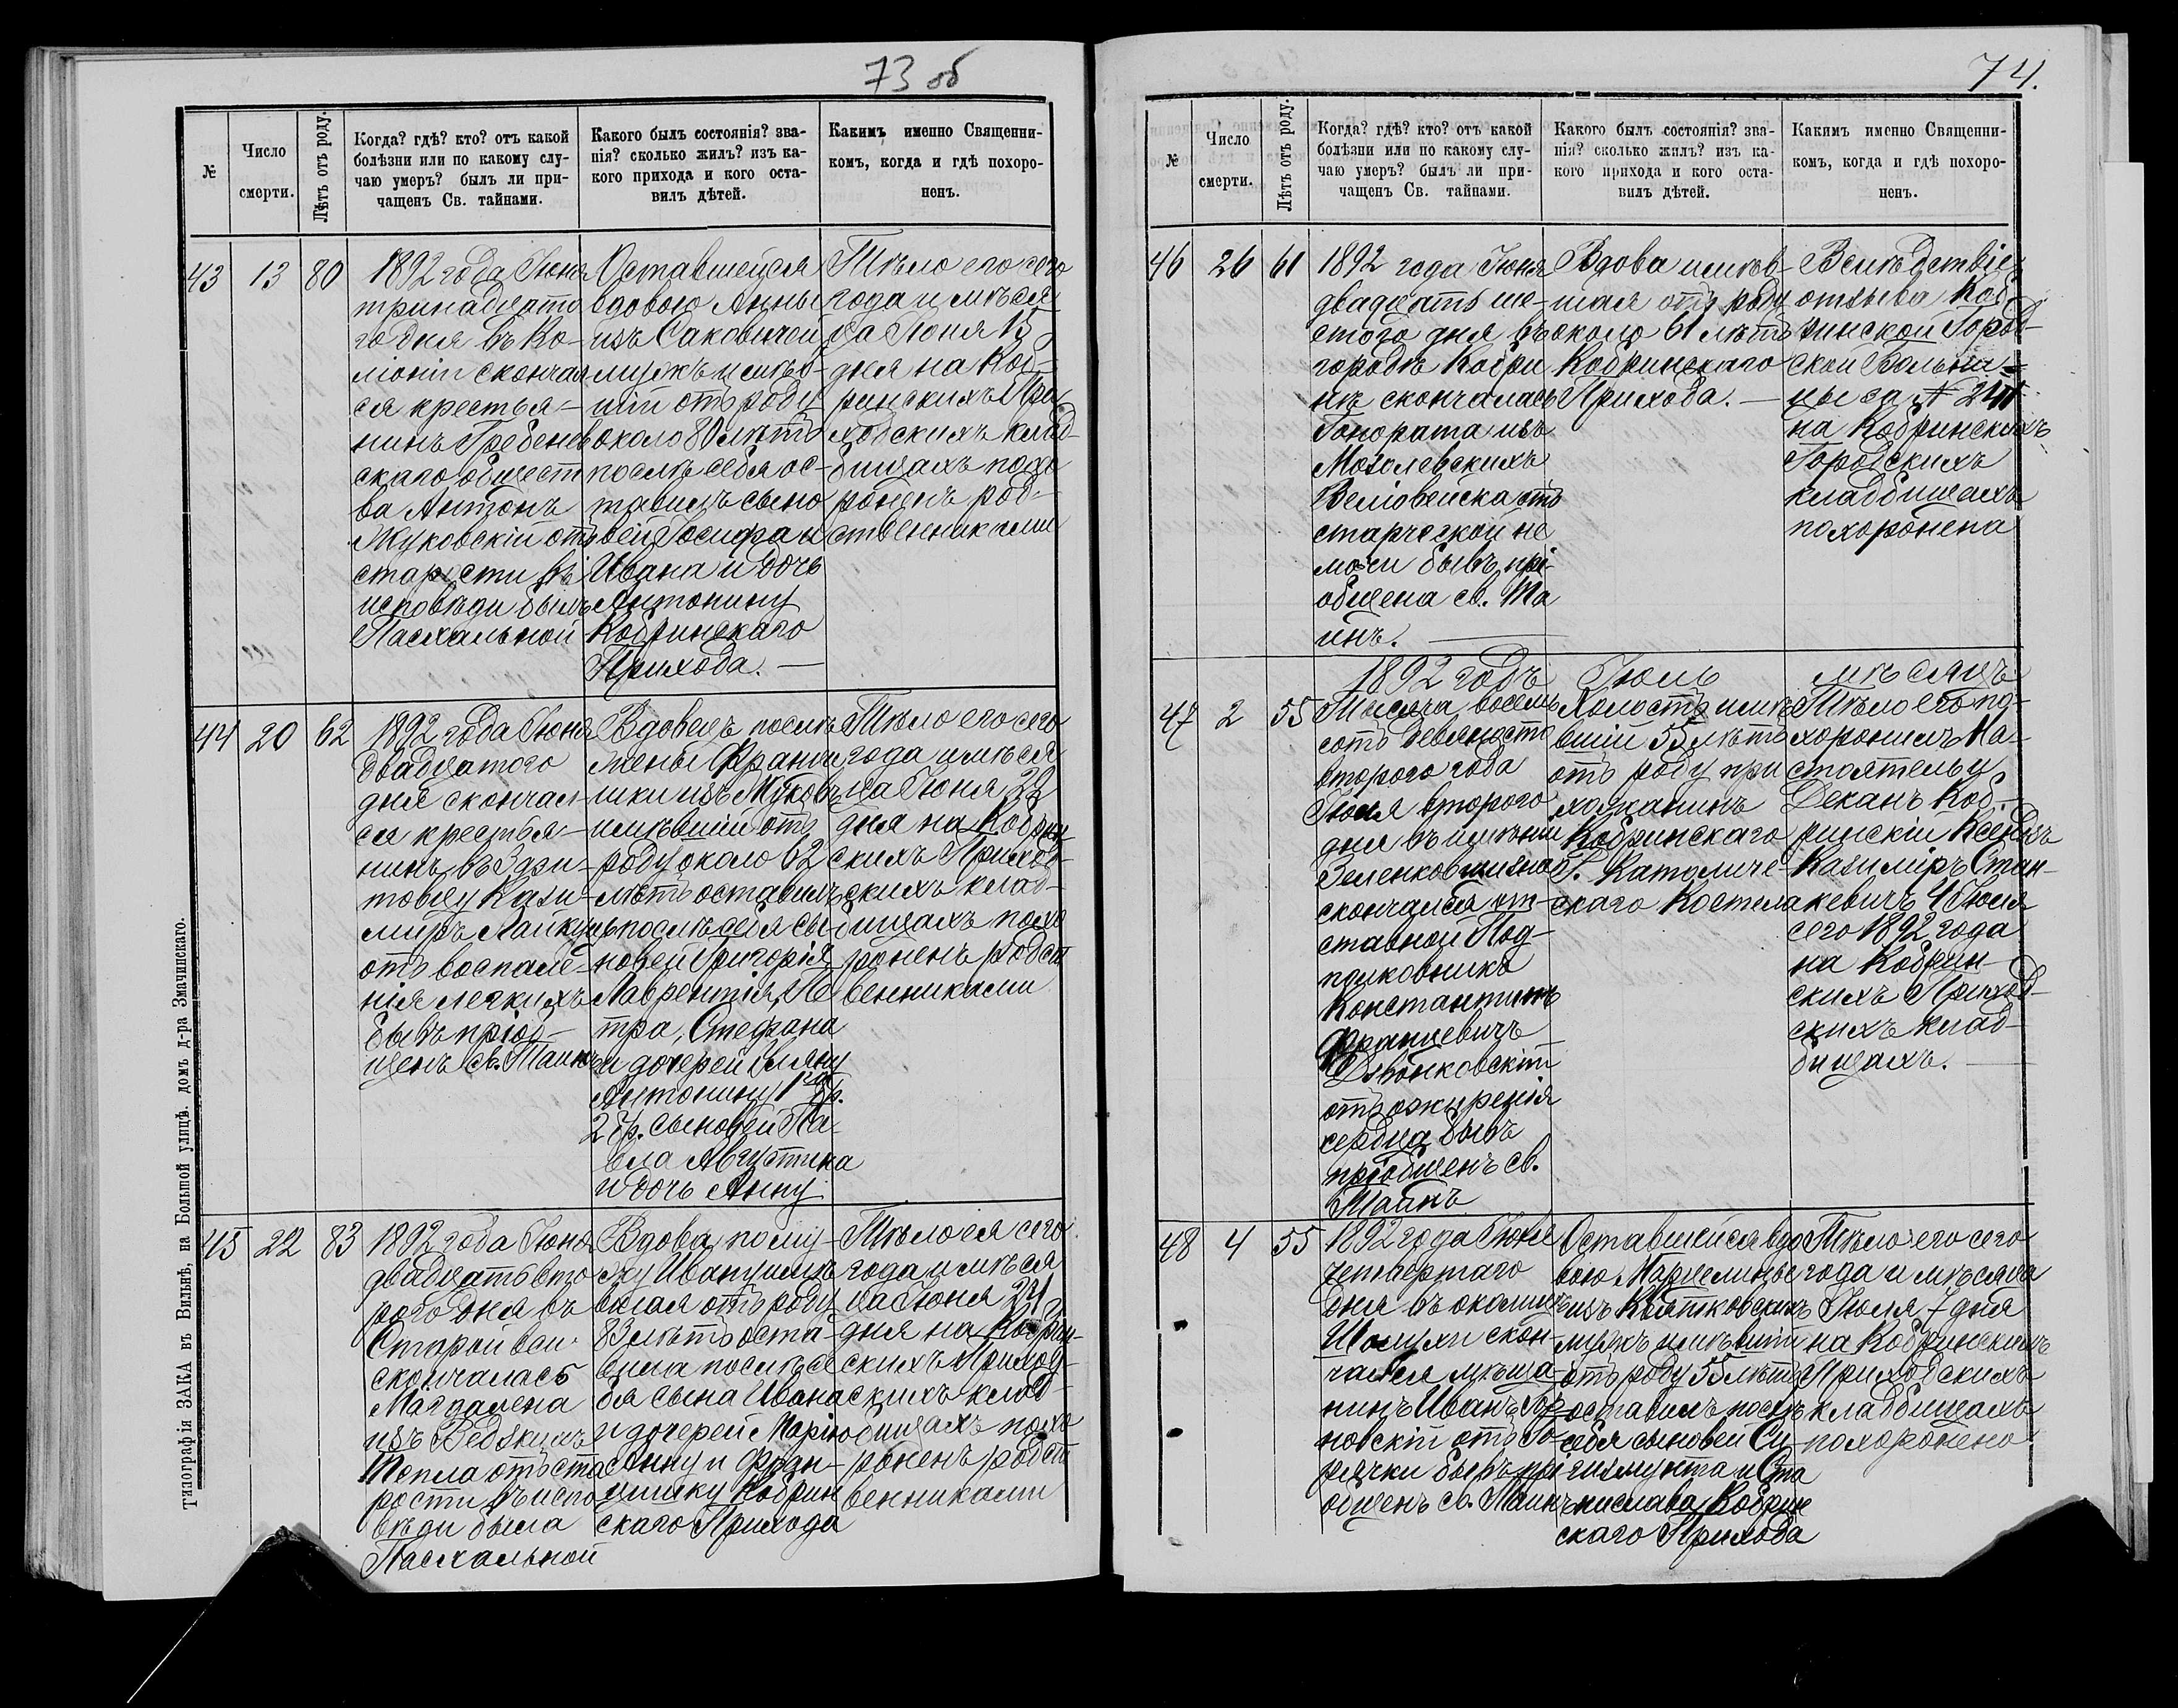 73 об
№
Число
смерти.
Лѣтъ отъ роду.
Когда? гдѣ? кто? отъ какой
болѣзни или по какому слу-
чаю умеръ? былъ ли при-
чащенъ Св. тайнами.
Какого былъ состоянія? зва-
нія? сколько жилъ? изъ ка-
кого прихода и кого оста-
вилъ дѣтей.
Какимъ именно Священни-
комъ, когда и гдѣ похоро-
ненъ.
43
13
80
1892 года Іюня
тринадцато
го дня въ Ко-
лоніи скончал
ся крестья-
нинъ Гребенев
скаго общест
ва Антонъ
Жуковскій отъ
старости въ
исповѣди былъ
Пасхальной
Оставшейся
вдовою Анны
изъ Саковичей
мужъ имѣв-
шій отъ роду
около 80 лѣтъ
послѣ себя ос-
тавилъ сыно
вей Іосифа и
Ивана и дочь
Антонину
Кобринскаго
Прихода. —
Тѣло его сего
года и мѣся
ца Іюня 15
дня на Коб-
ринскихъ При
ходскихъ клад-
бищахъ похо
роненъ род-
ственниками
44
20
62
1892 года Іюня
двадцатого
дня скончал-
ся крестья-
нинъ въ
товцу Кази-
миръ
отъ воспале-
нія легкихъ
бывъ пріоб-
щенъ св. Таинъ
Вдовецъ послѣ
жены Франци
шки изъ Жуковъ
имѣвшій отъ
роду около 62
лѣтъ оставилъ
послѣ себя сы-
новей Григорія
Лаврентія, Пе
тра, Стефана
и дочерей
Антонину 1го бр.
2 бр. сыновей Па-
вла Августина
и дочь Анну
Тѣло его сего
года и мѣся
ца Іюня 22
дня на Кобрин
скихъ Приход-
скихъ клад-
бищахъ похо
роненъ родст
венниками
45
22
83
1892 года Іюня
двадцать вто
рого дня въ
Старой вси
скончалась
Магдалена
изъ
Тепла отъ ста
рости въ испо
вѣди была
Пасхальной
Вдова по му-
жу Ивану имѣ
вшая отъ роду
83 лѣтъ оста-
вила послѣ се
бя сына Ивана
и дочерей Марію
Анну и Фран-
цишку Кобрин
скаго Прихода
Тѣло ея сего
года и мѣся
ца Іюня 24
дня на Кобрин-
скихъ Приход-
скихъ клад-
бищахъ похо
роненъ родст
венниками
Типографія ЗАКА въ Вильнѣ, на Большой улицѣ. домъ д-ра Змачинскаго.
74.
№
Число
смерти.
Лѣтъ отъ роду.
Когда? гдѣ? кто? отъ какой
болѣзни или по какому слу-
чаю умеръ? былъ ли при-
чащенъ Св. тайнами.
Какого былъ состоянія? зва-
нія? сколько жилъ? изъ ка-
кого прихода и кого оста-
вилъ дѣтей.
Какимъ именно Священни-
комъ, когда и гдѣ похоро-
ненъ.
46
26
61
1892 года Іюня
двадцать ше-
стого дня въ
городѣ Кобри
нѣ скончалась
Гонората изъ
отъ
старческой не
мочи бывъ прі-
общена св. Та
инъ.
Вдова имѣв-
шая отъ роду
около 61 лѣтъ
Кобринскаго
Прихода. —
Вслѣдствіе
отзыва Коб-
ринской Город-
ской Больни-
цы за №
на Кобринскихъ
Городскихъ
кладбищахъ
похоронена
1892 годъ Іюль мѣсяцъ
47
2
55
Тысяча восемь
сотъ девяносто
второго года
Іюля второго
дня въ имѣніи
Зеленковщизна
скончался от-
ставной Под-
полковникъ
Константинъ
Францевичъ
Дзвонковскій
отъ ожиренія
сердца бывъ
пріобщенъ св.
Таинъ
Холостъ имѣ
вшій 55 лѣтъ
отъ роду при
хожанинъ
Кобринскаго
Р. Католиче-
скаго Костела
Тѣло его по-
хоронилъ На-
стоятель и
Деканъ Коб-
ринскій Ксендзъ
Казиміръ Стан-
кевичъ 4 Іюля
сего 1892 года
на Кобрин-
скихъ Приход-
скихъ клад-
бищахъ.
48
4
55
1892 года Іюля
четвертаго
дня въ околицѣ
скон-
чался мѣща-
нинъ Иванъ
отъ го-
рячки бывъ прі
общенъ св. Таинъ
Оставшейся вдо
вою Марцелины
изъ Квятковскихъ
мужъ имѣвшій
отъ роду 55 лѣтъ
оставилъ послѣ
себя сыновей Си
гизмунта и Ста
нислава Кобрин
скаго Прихода
Тѣло его сего
года и мѣсяца
Іюля 7 дня
на Кобринскихъ
Приходскихъ
кладбищахъ
похоронено